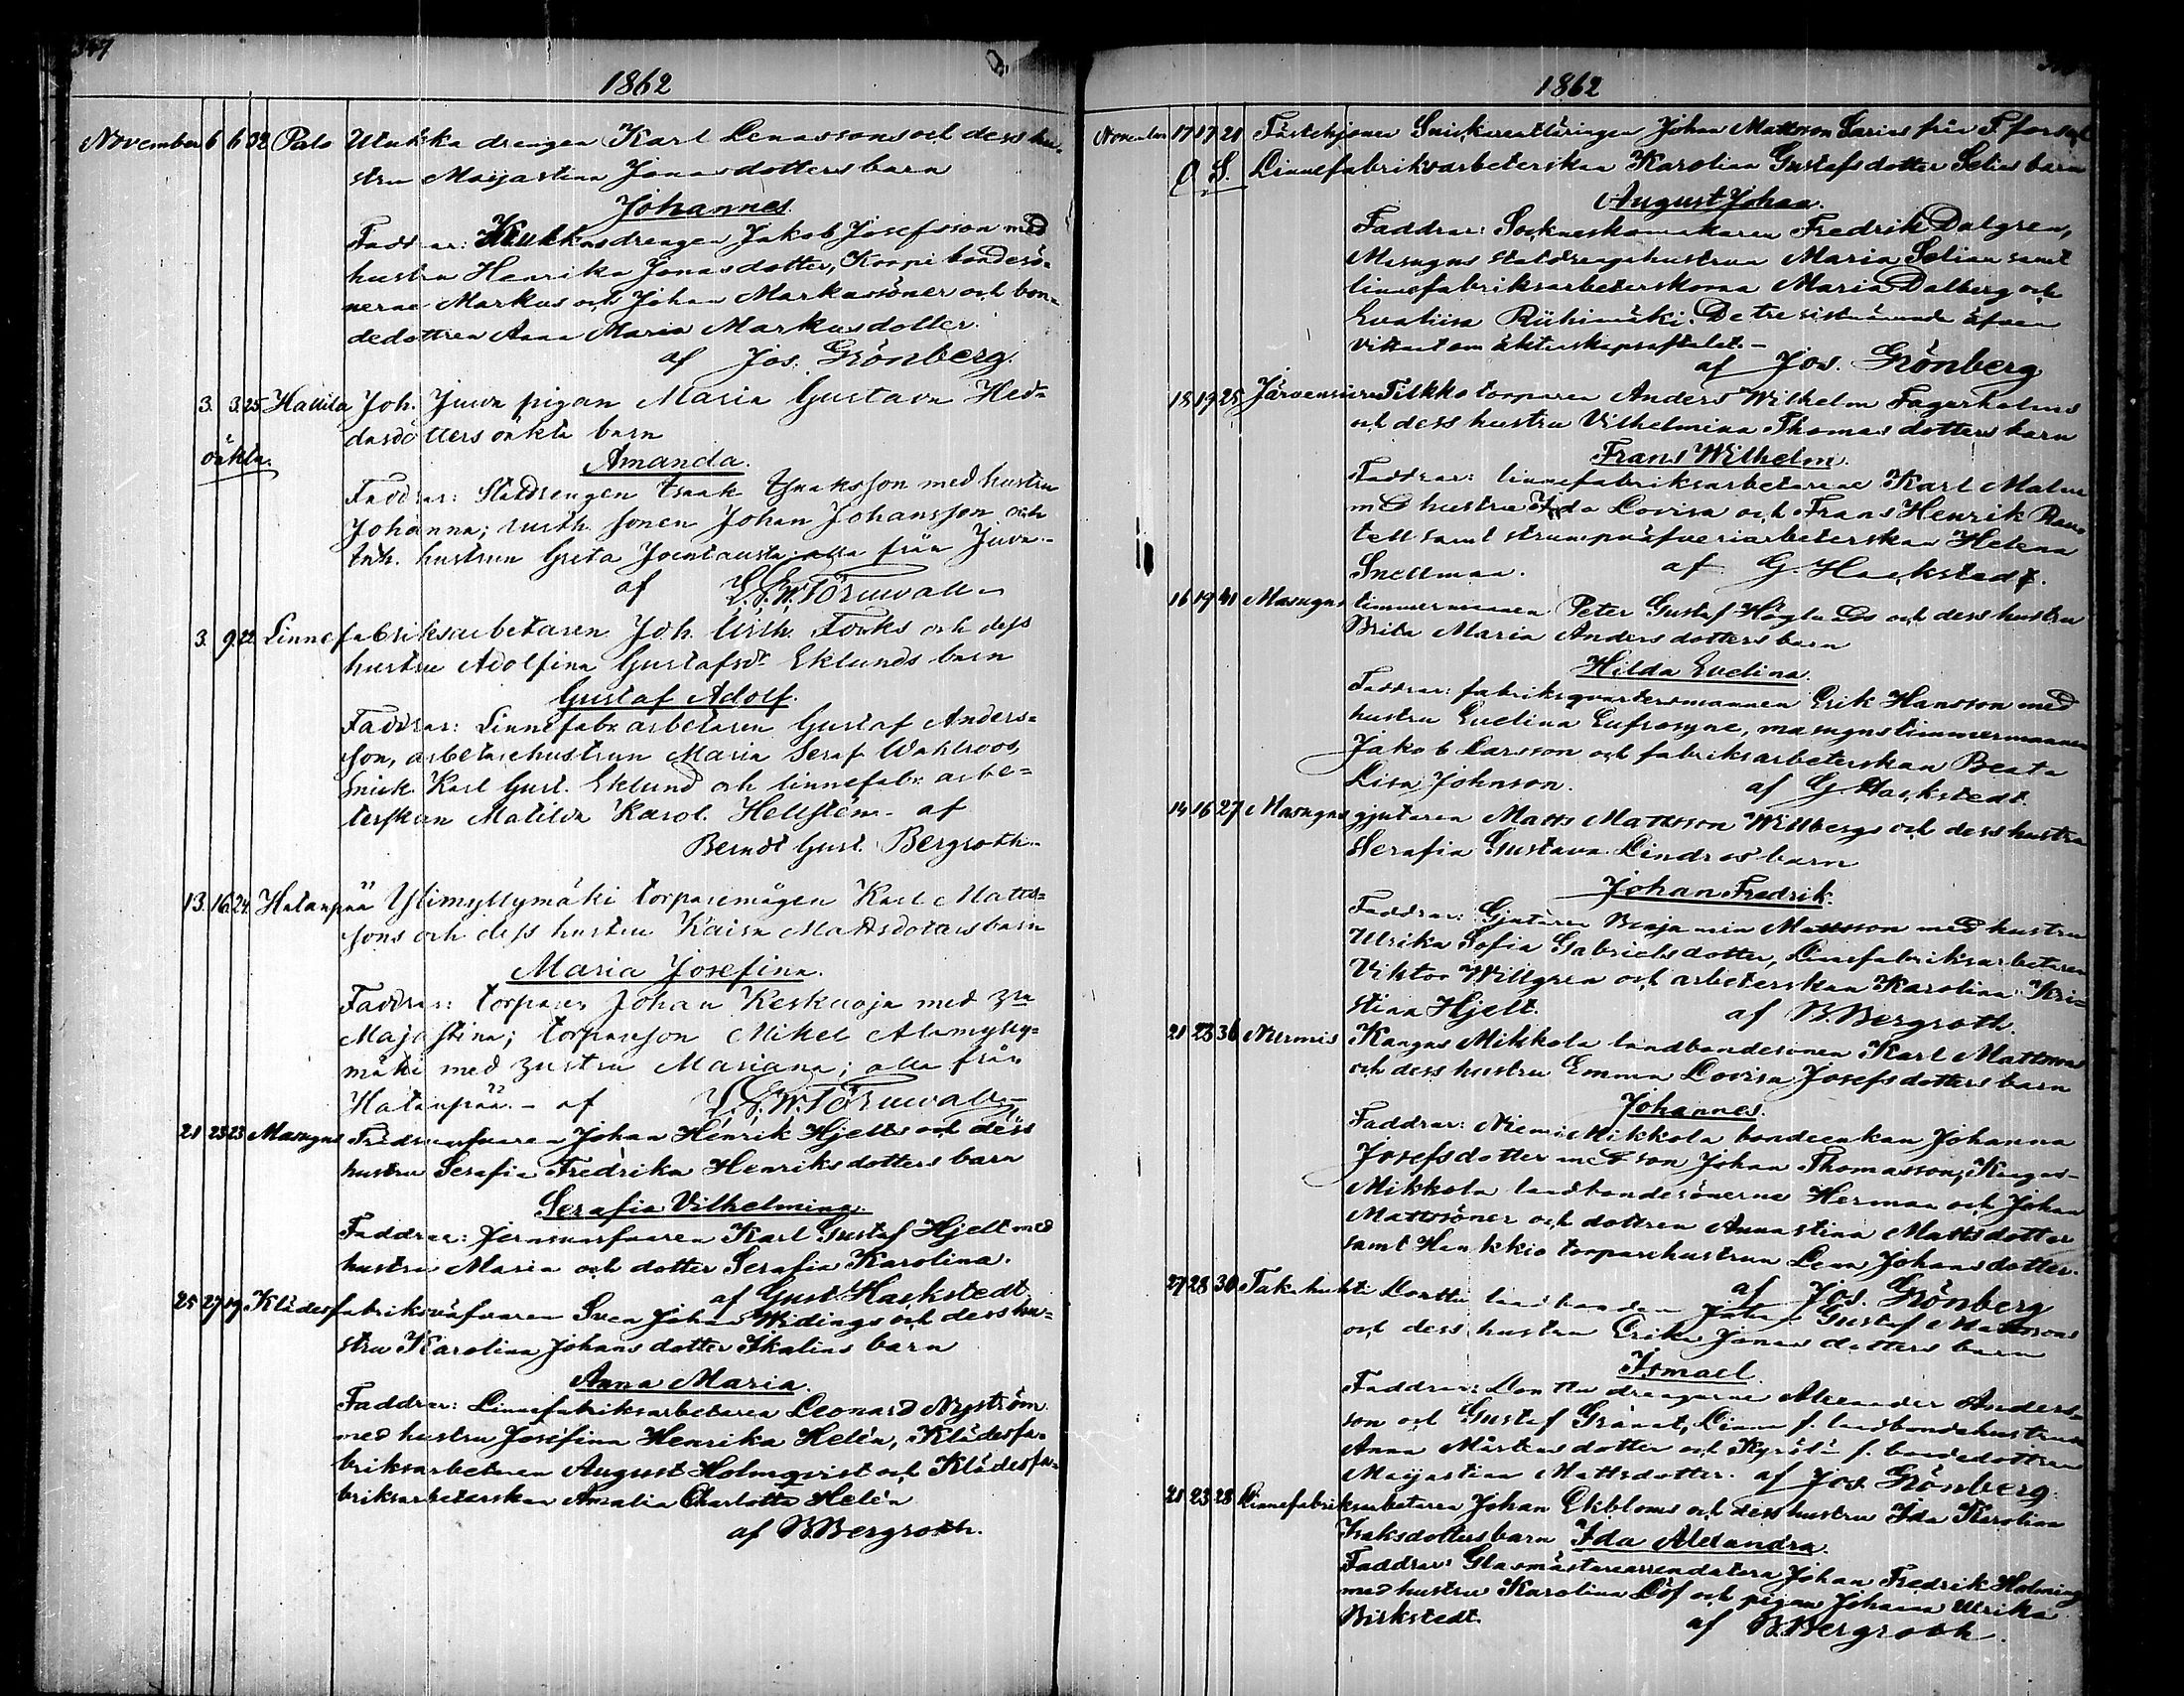 347
1862
November 6 6 32 Palo Ukukka drengen Karl Lenassons och dess hu-
stru Maijastina Jonasdotters barn
Johannes.
Faddrar: Kukkas drengen Jakob Josefsson med
hustru Henrika Jonasdotter, Korpi bondesö-
nerne Markus och Johan Markussöner och bon-
dedottren Anna Maria Markusdotter.
af Jos. Grönberg.
3. 3. 25 Hallila Joh. Juva pigan Maria Gustava Hed-
dasdotters oäkta barn
oäkta.
Amanda.
Faddrar: Statdrengen Isaak Isaksson med hustru
Johanna; sonen Johan Johansson och
inh. hustrun Greta alla från Juva.-
af L.G.W. Törnwall-
3. 9. 22 Linnefabriksarbetaren Joh. Wilh. Forss och dess
hustru Adolfina Gustafsdr Eklunds barn
Gustaf Adolf.
Faddrar: Linnefabr. arbetaren Gustaf Anders-
son, arbetarehustrun Maria Seraf. Wahlroos,
Snick. Karl Gust. Eklund och linnefabr. arbe-
terskan Matilda Karol. Hellstén. af
Berndt Gust. Bergroth.
13. 16. 24 Hatanpää Ylimyllymäki torparemågen Karl Matts-
sons och dess hustru Kaisa Mattsdotters barn
Maria Josefina.
Faddrar: torparen Johan Keskuoja med
Majastina; torpareson Mikel Alamylly-
mäki med hustru Mariana; alla från
Hatanpää. - af L.G.W. Törnwall.-
21 23 23 Masugns Johan Henrik Hjelts och dess
hustru Serafia Fredrika Henriksdotters barn
Serafia Vilhelmina.
Faddrar: Jernsvarfvaren Karl Gustaf Hjelt med
hustru Maria och dotter Serafia Karolina.
af Gust. Hackstedt
25 27 19 Klädesfabriksväfvaren Sven Johan Widings och dess hu-
stru Karolina Johansdotter Ikalins barn
Anna Maria.
Faddrar: Linnefabriksarbetaren Leonard Nyström
med hustru Josefina Henrika Helén, Klädesfa-
briksarbetaren August Holmqvist och Klädesfa-
briksarbeterskan Amalia Charlotta Helén
af B. Bergroth.
1862
November 17 17 21 Fästehjonen Snickareattäringen Johan Mattsson Sarins från T.fors och
O. S. Linnefabriksarbeterskan Karolina Gustafsdotter Selins barn
August Johan.
Faddrar: Sockneskomakaren Fredrik Dalgren,
Masugns statdrengshustrun Maria Selin samt
linnefabriksarbeterskorna Maria Dalberg och
Evalisa Riihimäki. De tre sistnämnda äfven
vittnat om äktenskapsaftalet.-
af Jos. Grönberg
18 19 25 Järvensivu Tilkko torparen Anders Wilhelm Fagerholms
och dess hustru Vilhelmina Thomasdotters barn
Frans Wilhelm.
Faddrar: linnefabriksarbetarne Karl Malm
med hustru Ida Lovisa och Frans Henrik
tell samt strumpväfveriarbeterskan Helena
Snellman. af G. Hackstedt.
16 19 41 Masugns timmermannen Peter Gustaf Höglunds och dess hustru
Brita Maria Andersdotters barn
Hilda Evelina.
Faddrar: fabriksqvartersmannen Erik Hansson med
hustru Evelina Eufrosyne, masugnstimmermannen
Jakob Larsson och fabriksarbeterskan Beata
Lisa Johnson. af G. Hackstedt.
14 16 27 Masugns gjutaren Matts Mattsson Willbergs och dess hustru
Serafia Gustava Lindroos barn
Johan Fredrik.
Faddrar: Gjutaren Benjamin Mattsson med hustru
Ulrika Sofia Gabrielsdotter, Linnefabriksarbetaren
Viktor Willgren och arbeterskan Karolina Kri-
stina Hjelt. af B. Bergroth.
21 23 36 Niemis Kangas Mikkola landbondesonen Karl Mattssons
och dess hustru Emma Lovisa Josefsdotters barn
Johannes.
Faddrar: Niemi Mikkola bondeenkan Johanna
Josefsdotter med son Johan Thomasson, Kangas-
Mikkola landbondesönerne Herman och Johan
Mattssöner och dottren Annastina Mattsdotter
samt Hankkio torparehustrun Lena Johansdotter.
af Jos. Grönberg
27 28 30 Takahuhti Lonttu landbonden Johan Gustaf Mattssons
och dess hustru Erika Jonasdotters barn
Ismael.
Faddrar: Lonttu drengarne Alexander Anders-
son och Gustaf Granat, Linna f. landbondehustrun
Anna Mårtensdotter och Kyrölä f. bondedottren
Maijastina Mattsdotter. af Jos. Grönberg.
21 23 28 Linnefabriksarbetaren Johan Ekbloms och dess hustru Ida Karolina
Isaksdotters barn Ida Alexandra.
Faddrar: Glasmästarearrendatorn Johan Fredrik Holming
med hustru Karolina Löf och pigan Johana Ulrika
Birkstedt. af B. Bergroth.